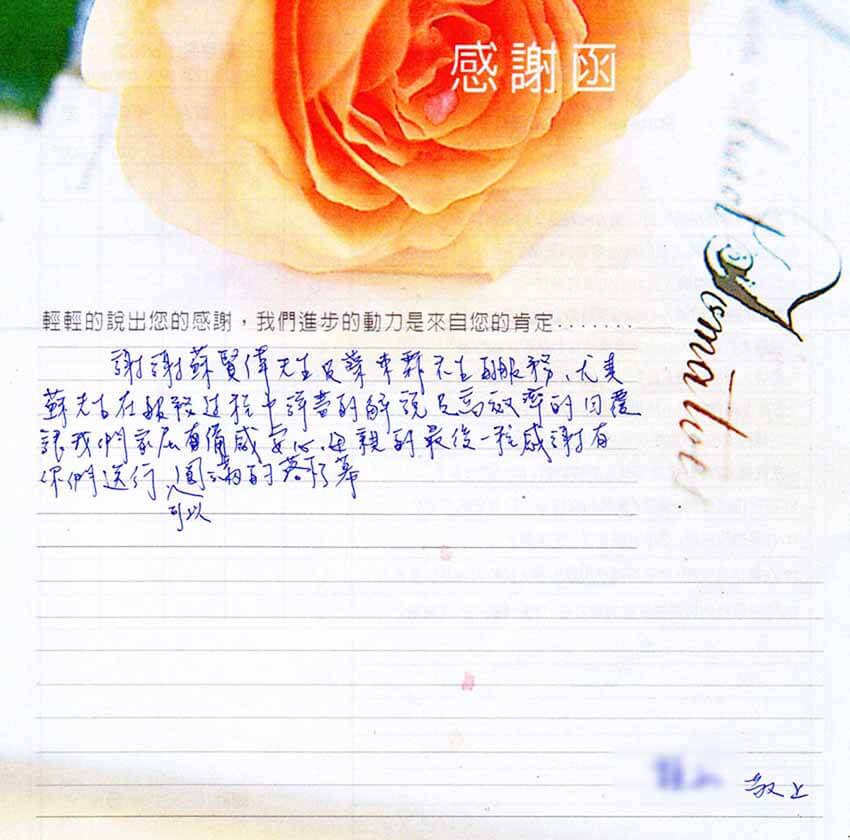 感謝函
輕輕的說出您的感謝，我們進步的動力是來自您的肯定.......
謝謝蘇賢偉先生及葉東霖先生的服務、尤其
蘇先生在服務过程中詳盡的解說及高效率的回覆
讓我們家屬有備感安心、母親的最後一程感謝有
你們送行 可以圓滿的落下幕
敬上